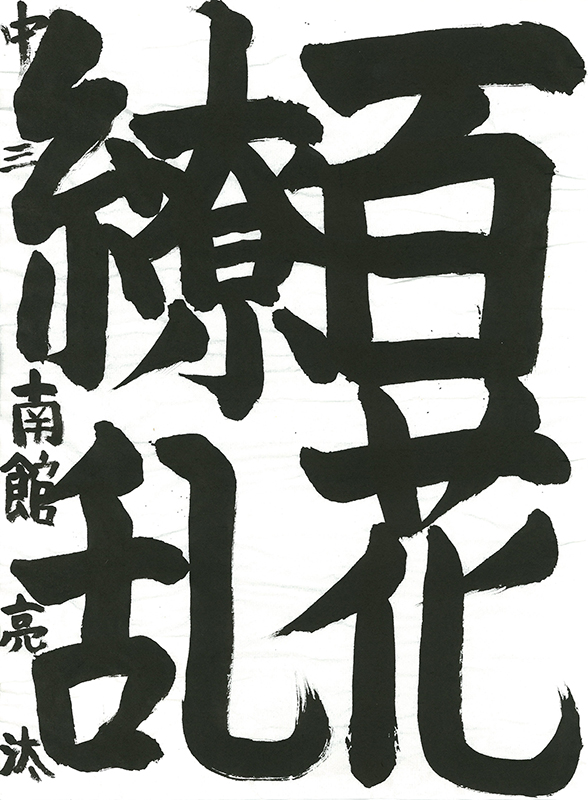 百花
繚乱
中三 南館 亮汰